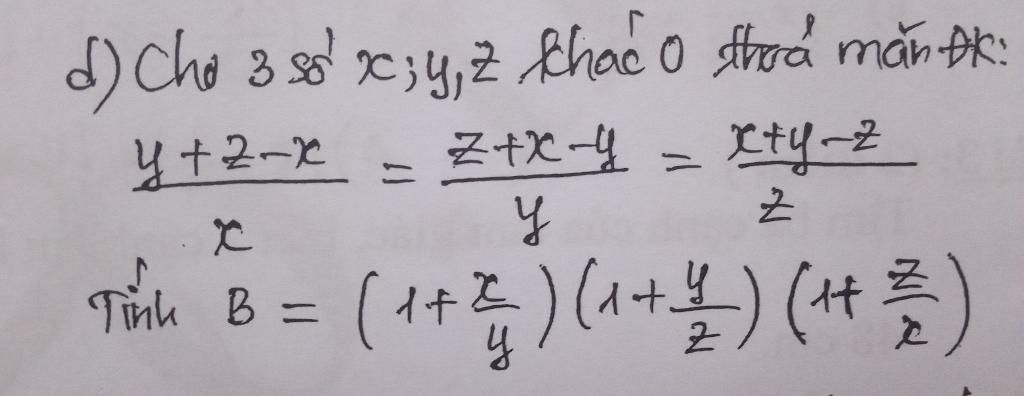 d) Cho 3 số x; y, z khác 0 thoả mãn ĐK:
y+z-x/x = z+x-y/y = x+y-z/z
Tính B = (1+x/y)(1+y/z)(1+z/x)